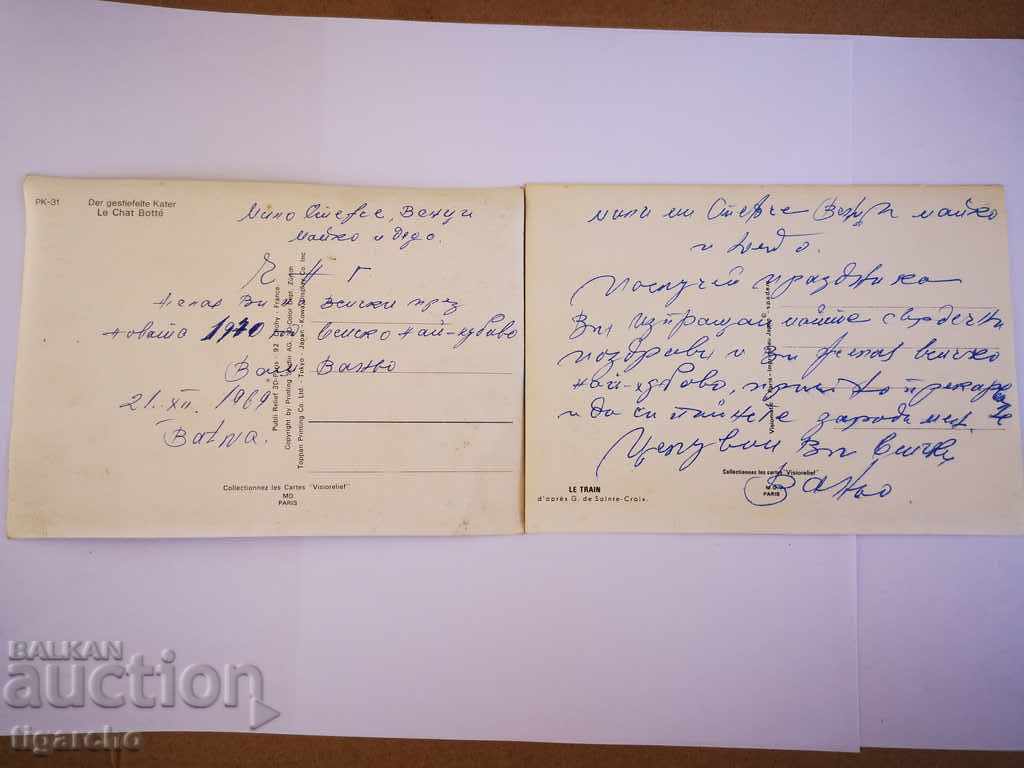 PK-31
Der gestiefelte Kater
Le Chat Botté
Мило Стефче, Венци
майко и дядо.
Ч Н Г
желая Ви на всички през
новата 1970 год всичко най-хубаво
Ваш Ваньо
21.XII. 1969
Варна.
Publi Relief 3D-Photo - 92 Clichy - France
Copyright by Printing Studio AG. 3D Color Dept. Zürich
Toppan Printing Co. Ltd - Tokyo - Japan - Kowa Display Co. Inc
Collectionnez les Cartes "Visiorelief"
MD
PARIS
мили ми Стефче Венци майко
и дедо.
По случай празника
Ви изпращам моите сърдечни
поздрави и Ви желая всичко
най-хубаво,
и да си пийнете заради мен.
Целувам Ви всички
Ваньо
LE TRAIN
d'après G. de Sainte-Croix.
Collectionnez les cartes "Visiorelief"
MD
PARIS
BALKAN
auction
tigarcho